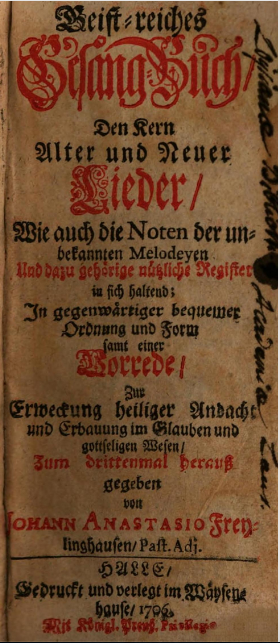 Geist-reiches
Gesang-Buch/
Den Kern
Alter und Neuer
Lieder/
Wie auch die Noten der un-
bekannten Melodeyen
Und dazu gehörige nützliche Register
in sich haltend;
In gegenwärtiger bequemer
Ordnung und Form
samt einer
Vorrede/
Zur
Erweckung heiliger Andacht
und Erbauung im Glauben und
gottseligen Wesen/
Zum drittenmal herauß
gegeben
von
JOHANN ANASTASIO Frey-
linghausen/ Past. Adj.
HALLE/
Gedruckt und verlegt im Wäysen-
hause/ 1706.
Mit Königl. Preuß. Privilegio